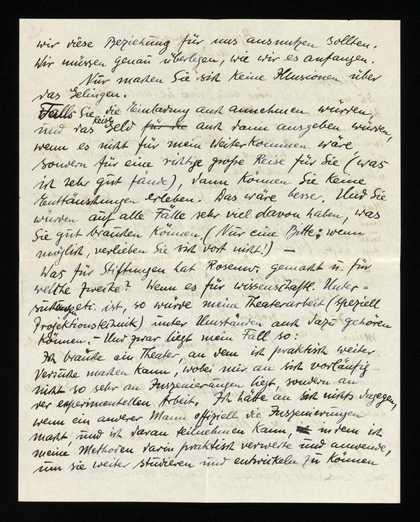 wir diese Beziehung für uns ausnutzen sollten.
Wir müssen genau überlegen, wie wir es anfangen.
Nur machen Sie sich keine Illusionen über
das Gelingen.
Falls Sie die Einladung auch annehmen würden,
und das Geld für die auch dann ausgeben würden,
wenn es nicht für mein Weiterkommen wäre
sondern für eine richtige große Reise für Sie (was
ich sehr gut fände), dann können Sie keine
Enttäuschungen erleben. Das wäre besser. Und Sie
würden auf alle Fälle sehr viel davon haben, was
Sie gut brauchen können. (Nur eine Bitte: wenn
möglich, verlieben Sie sich dort nicht!) —
Was für Stiftungen hat Rosenw. gemacht u. für
welche Zwecke? Wenn es für wissenschaftl. Unter-
suchung etc. ist, so würde meine Theaterarbeit (speziell
Projektionstechnik) unter Umständen auch dazu gehören
können. — Und zwar liegt mein Fall so:
Ich brauche ein Theater, an dem ich praktisch weiter
Versuche machen kann, wobei mir an sich vorläufig
nicht so sehr an Inszenierungen liegt, sondern an
der experimentellen Arbeit. Ich hätte an sich nichts dagegen,
wenn ein anderer Mann offiziell die Inszenierungen
macht und ich daran teilnehmen kann, indem ich
meine Methoden darin praktisch verwerte und anwende,
um sie weiter studieren und entwickeln zu können